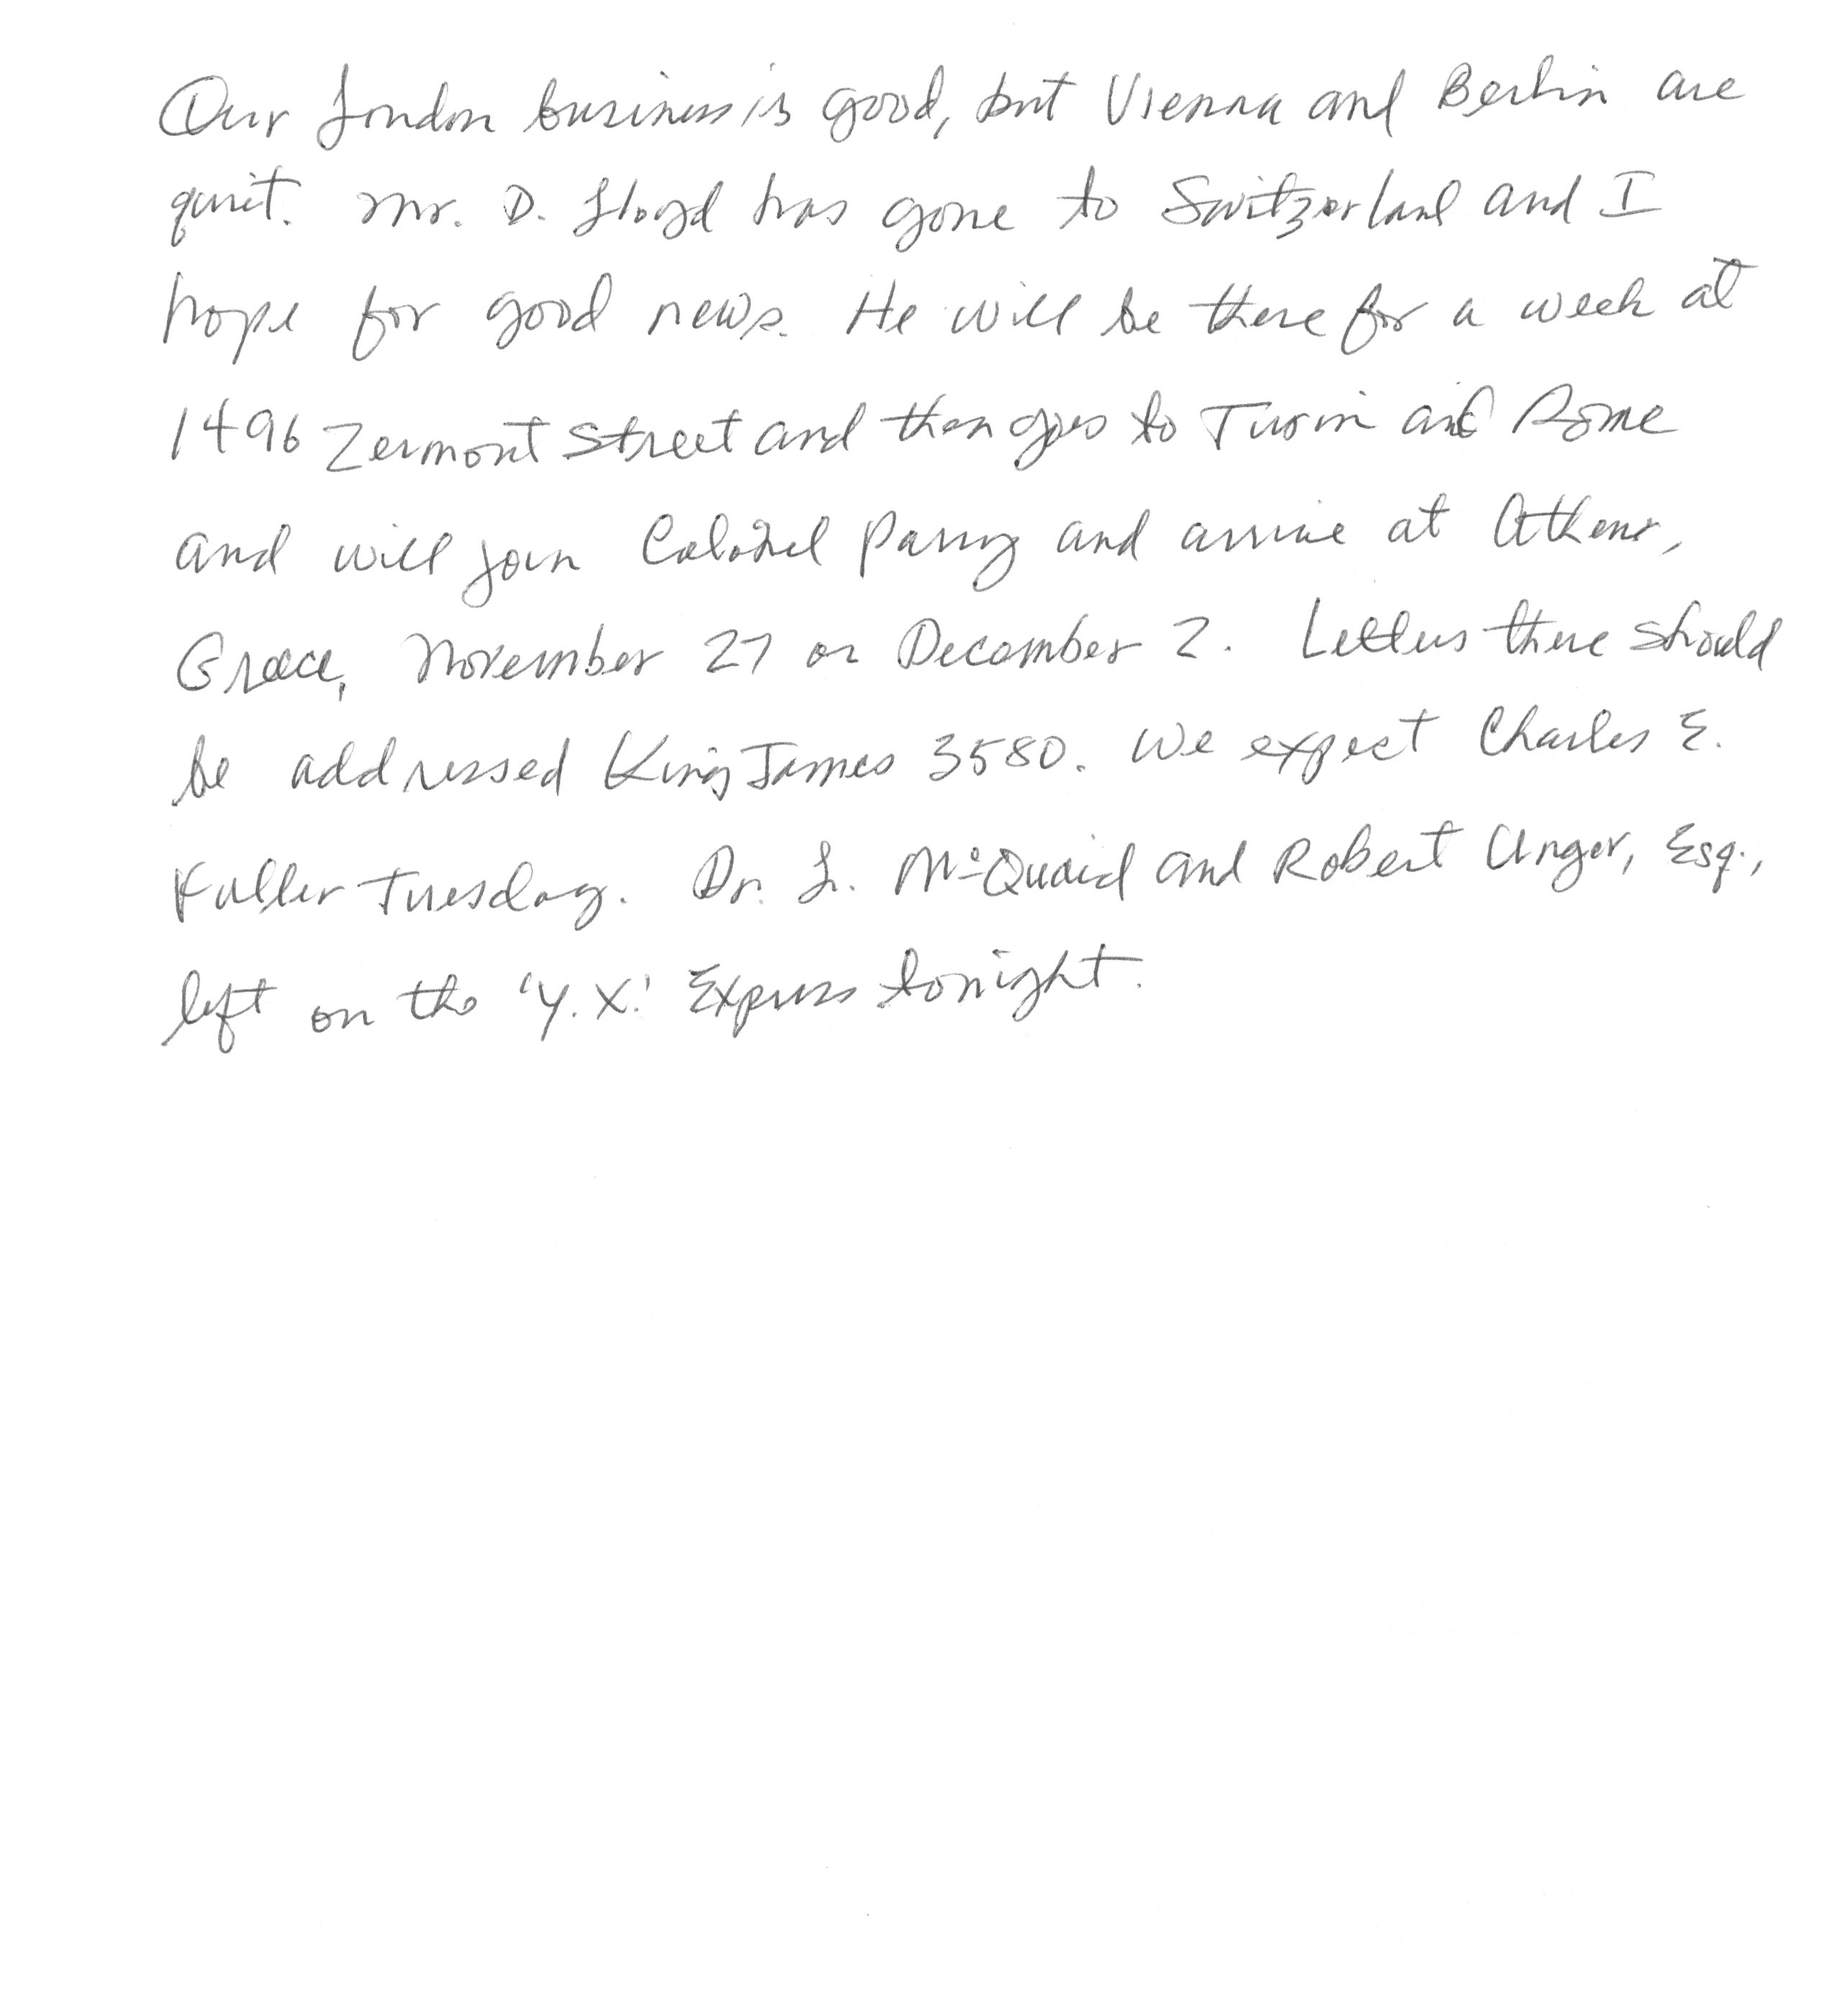 Our London business is good, but Vienna and Berlin are
quiet. Mr. D. Lloyd has gone to Switzerland and I
hope for good news. He will be there for a week at
1496 Zermont Street and then goes to Turin and Rome
and will join Colonel Parry and arrive at Athens,
Greece, November 27 or December 2. Letters there should
be addressed King James 3580. We expect Charles E.
Fuller Tuesday. Dr. L. McQuaid and Robert Unger, Esq.,
left on the 'Y.X.' Express tonight.